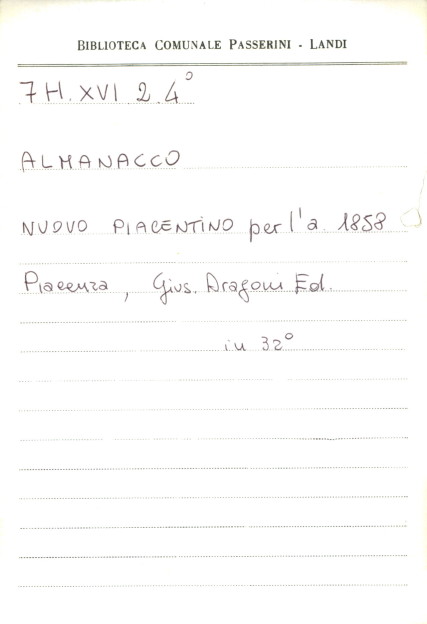 BIBLIOTECA COMUNALE PASSERINI - LANDI
7 H. XVI 2. 4°
ALMANACCO
NUOVO PIACENTINO per l'a. 1858
Piacenza, Gius. Dragoni Ed.
in 32°